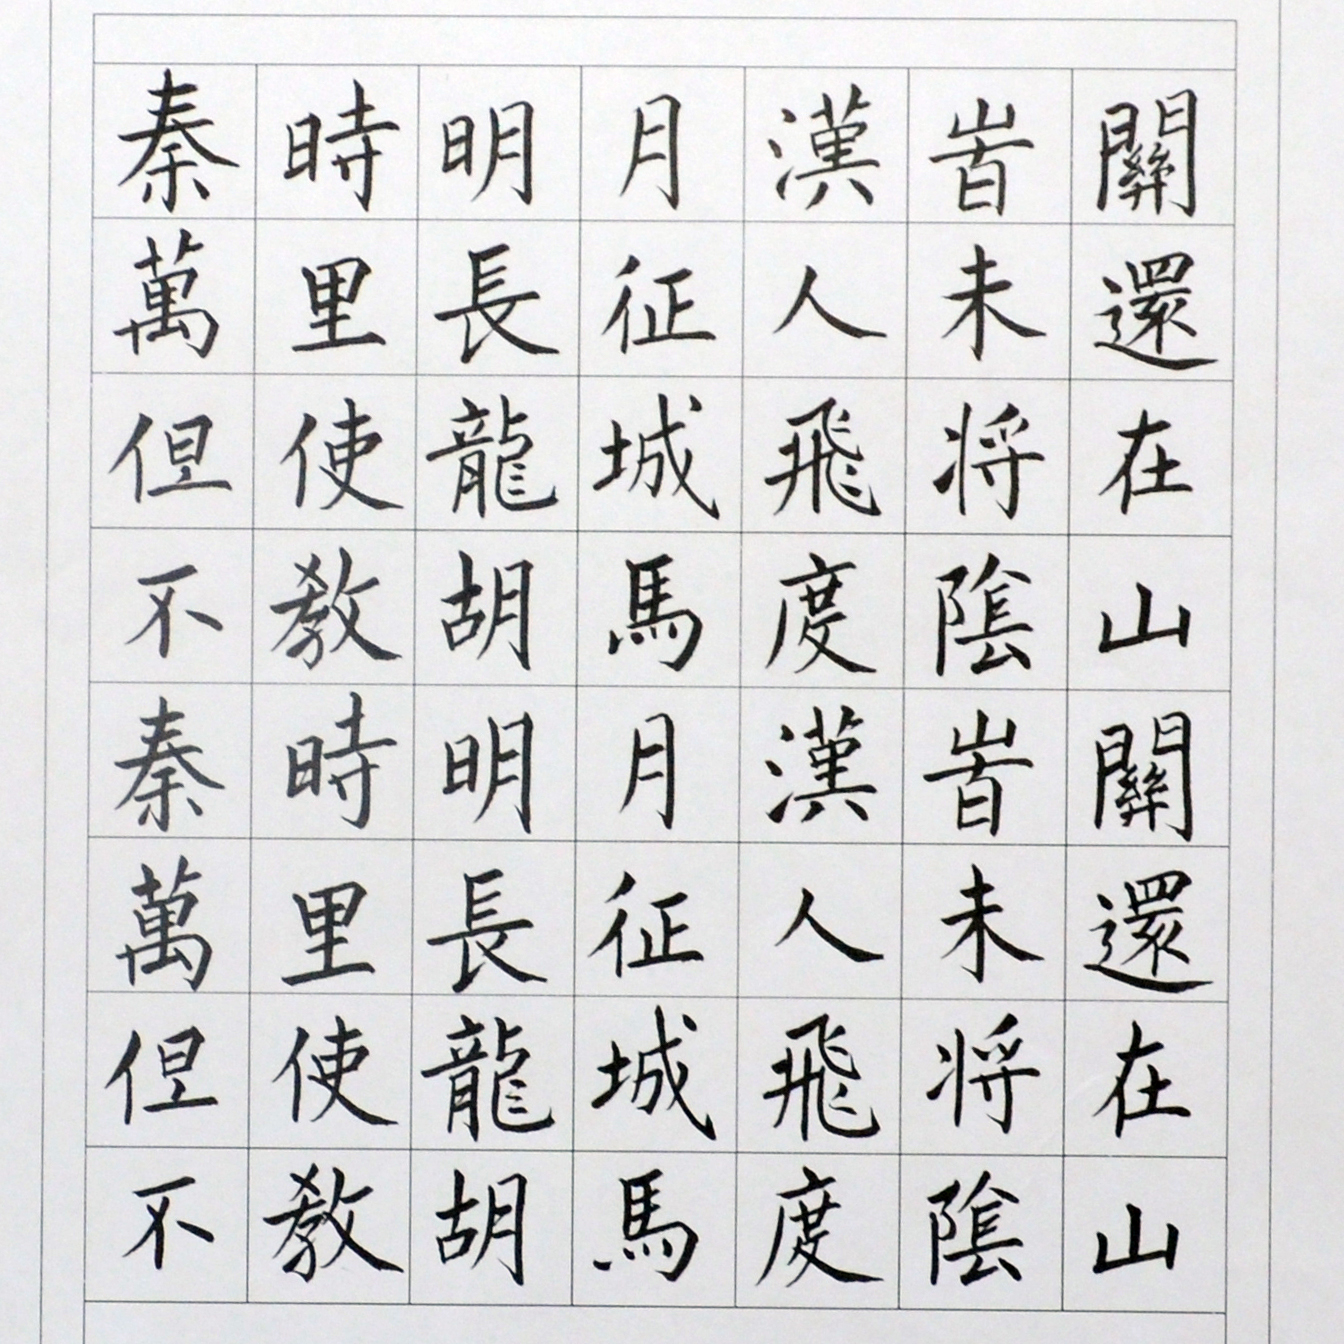 秦時明月漢旹關
萬里長征人未還
但使龍城飛将在
不教胡馬度陰山
秦時明月漢旹關
萬里長征人未還
但使龍城飛将在
不教胡馬度陰山